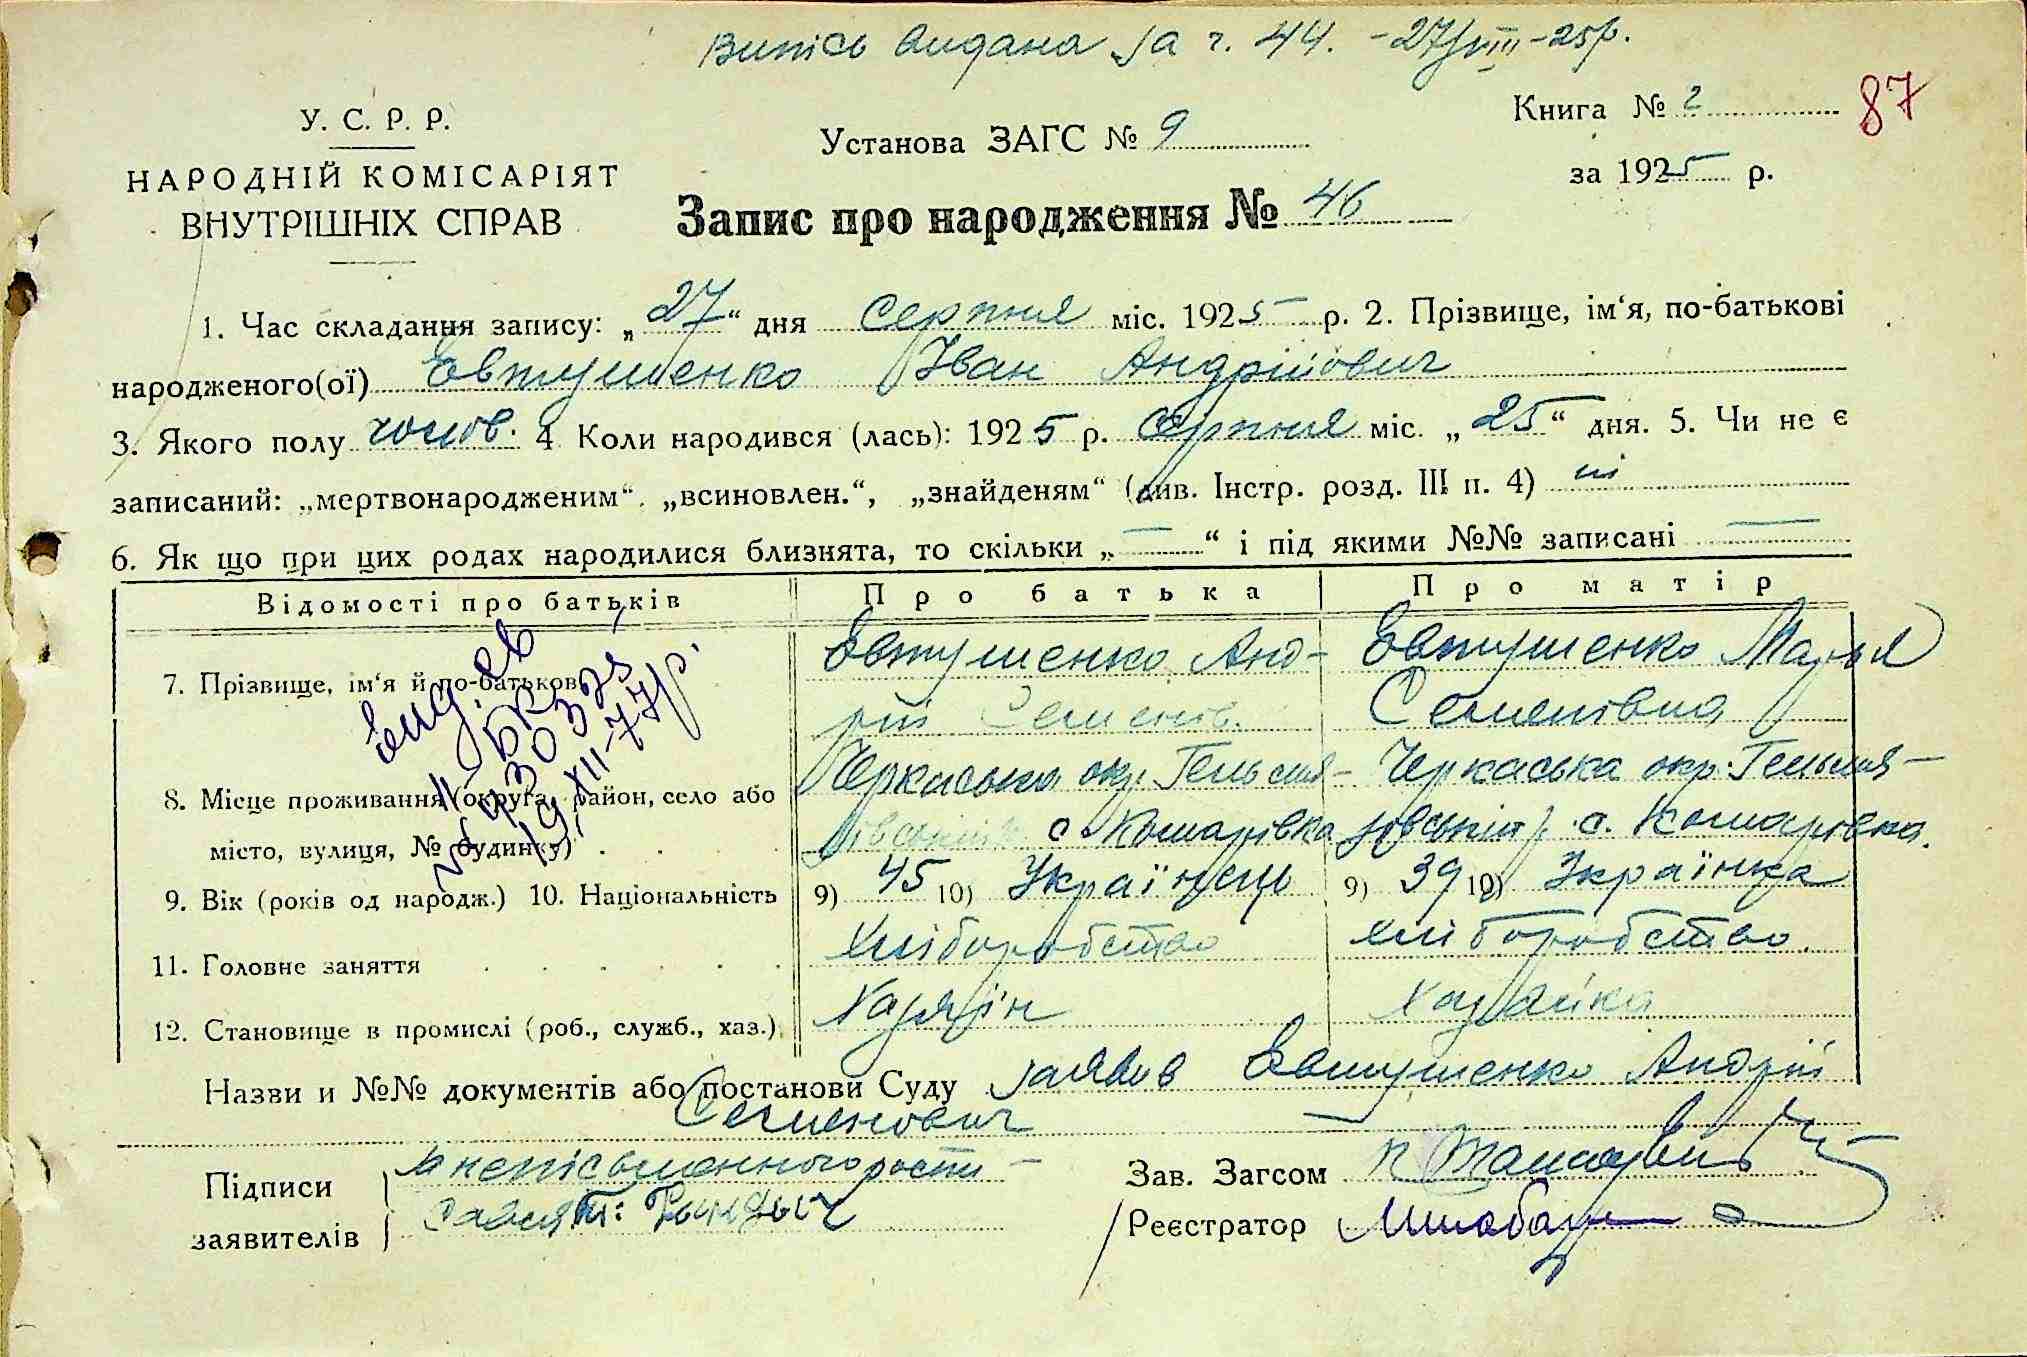 Випісь видана за ч. 44. - 27/VIII - 25р.
Книга № 2
87
У. С. Р. Р.
Установа ЗАГС № 9
за 1925 р.
НАРОДНІЙ КОМІСАРІЯТ
ВНУТРІШНІХ СПРАВ
Запис про народження № 46
1. Час складання запису: „27“ дня серпня міс. 1925 р. 2. Прізвище, ім‘я, по-батькові
народженого(ої) Євтушенко Іван Андрійович
3. Якого полу чолов. 4 Коли народився (лась): 1925 р. серпня міс. „25“ дня. 5. Чи не є
записаний: „мертвонародженим“, „всиновлен.“, „знайденям“ (див. Інстр. розд. III п. 4) ні
6. Як що при цих родах народилися близнята, то скільки „—“ і під якими №№ записані —
Відомості про батьків Про батька Про матір
7. Прізвище, ім‘я й по-батькові
Євтушенко Анд-
рій Семенів.
Євтушенко Марья
Семенівна
8. Місце проживання (округа, район, село або
місто, вулиця, № будинку)
Черкаська окр. Гельмя-
зівський р. с. Комарівка
Черкаська окр. Гельмя-
зівський р. с. Комарівка.
9. Вік (років од народж.) 10. Національність 9) 45 10) Українець 9) 39 10) Українка
11. Головне заняття хліборобство хліборобство.
12. Становище в промислі (роб., служб., хаз.) Хазяїн Хазяйка
вид. св
II БК
№ 430325
19.XII-77р.
Назви и №№ документів або постанови Суду заявив Євтушенко Андрій
Семенович
Підписи
заявителів
за неписьменного рости-
Зав. Загсом
Реєстратор